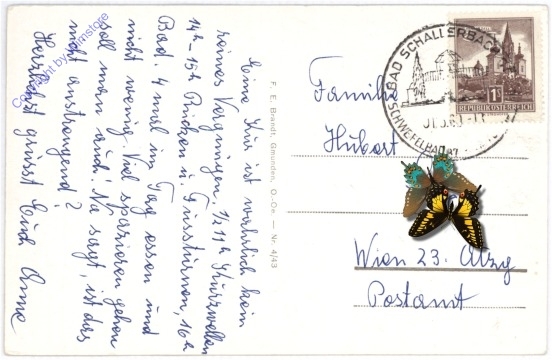 Eine Kur ist wahrlich kein
reines Vergnügen. ½ 11h Kurzwellen
14h - 15h Rücken u. Fussturnen, 16h
Bad. 4 mal im Tag essen und
nicht wenig. Viel spazieren gehen
soll man auch! Na sagt, ist das
nicht anstrengend?
Herzlichst grüsst Euch Anna
Copyright by
F. E. Brandt, Gmunden, O.-Oe. — Nr. 4/43
BAD SCHALLERBACH
SCHWEFELBAD
REPUBLIK ÖSTERREICH
1S
Familie
Hubert
Wien 23. Atzg
Postamt